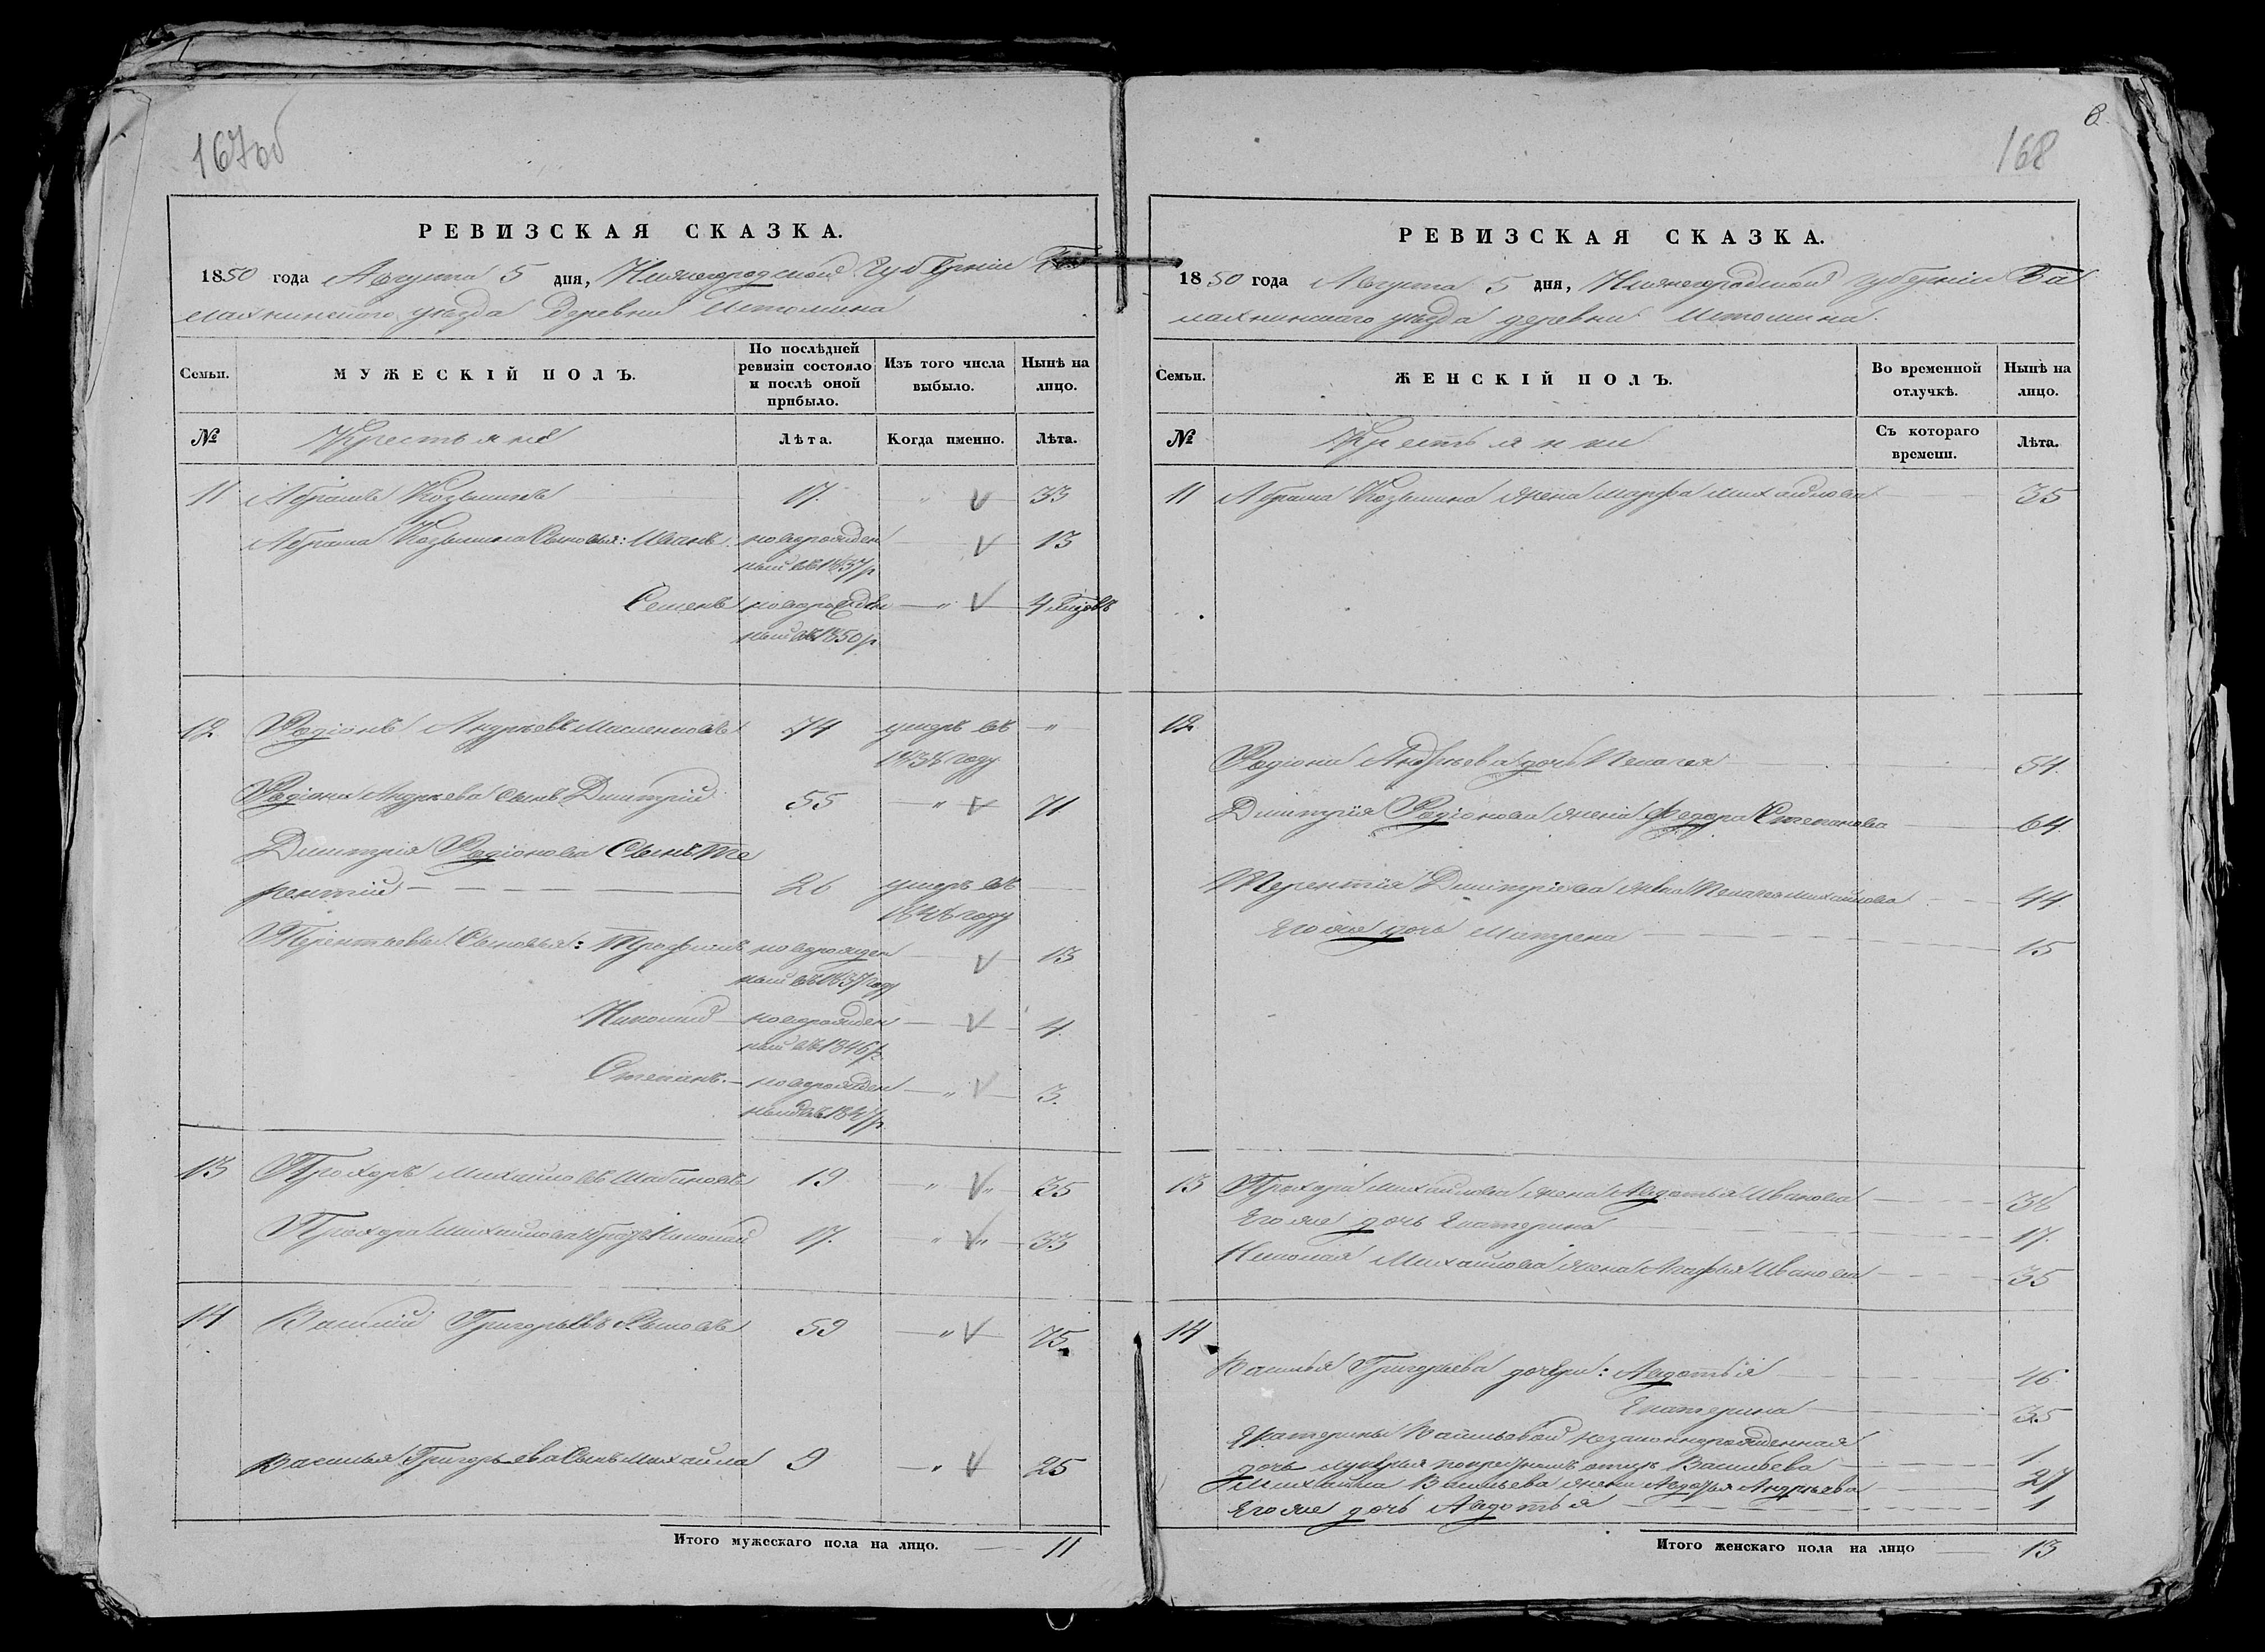 167об
РЕВИЗСКАЯ СКАЗКА.
1850 года Августа 5 дня, Нижегородской Губерніи Ба
лахнинскаго уезда Деревни Истомина
Семьи.
МУЖЕСКІЙ ПОЛЪ.
По послѣдней ревизіи состояло и послѣ оной прибыло.
Изъ того числа выбыло.
Нынѣ на лицо.
№
Крестьяне
Лѣта.
Когда именно.
Лѣта.
11 Абрамъ Козьминъ 17. " V 33
Абрама Козьмина Сыновья: Иванъ новорожден V 13
ный въ 1837 г
Семенъ новорожден " V 4 
ный въ 1850 г
12 Родіонъ Андреевъ 74 умеръ въ "
1838 году
Родіона Андреева Сынъ Дмитрій 55 " V 71
Дмитрія Родіонова Сынъ Те
рентій 26 умеръ въ
1848 году
Терентьевы Сыновья: Трофимъ новорожден V 13
ный въ 1837 году
Николай новорожден V 4.
ный въ 1846 г
Степанъ. новорожден " V 3.
ный въ 1847 г
13 Прохоръ Михайловъ 19 " V " 35
Прохора Михайлова братъ Николай 17. " V " 33
14 Василій Григорьевъ 59 " V 75.
Василья Григорьева Сынъ Михайла 9 " V 25
Итого мужескаго пола на лицо. 11
6.
168
РЕВИЗСКАЯ СКАЗКА.
1850 года Августа 5 дня, Нижегородской Губерніи Ба
лахнинскаго уезда деревни Истомина.
Семьи.
ЖЕНСКІЙ ПОЛЪ.
Во временной отлучкѣ.
Нынѣ на лицо.
№
Крестьянки
Съ котораго времени.
Лѣта.
11 Абрама Козьмина жена Марфа Михайлова 35
12
Родіона Андреева дочь Пелагея 54.
Дмитрія Родіонова жена Федора Степанова 64.
Терентія Дмитріева жена Пелагея Михайлова 44.
Его же дочь Матрена 15
13 Прохора Михайлова жена Авдотья Иванова 38
Его же дочь Екатерина 17.
Николая Михайлова жена Агафья Иванова 35
14
Василья Григорьева дочери: Авдотья 46.
Екатерина 35
Екатерины Васильевой незаконнорожденная
дочь Лукерья по крестному отцу Васильева 1
Михайла Васильева жена Авдотья Андреева 27
Его же дочь Авдотья 1
Итого женскаго пола на лицо 13